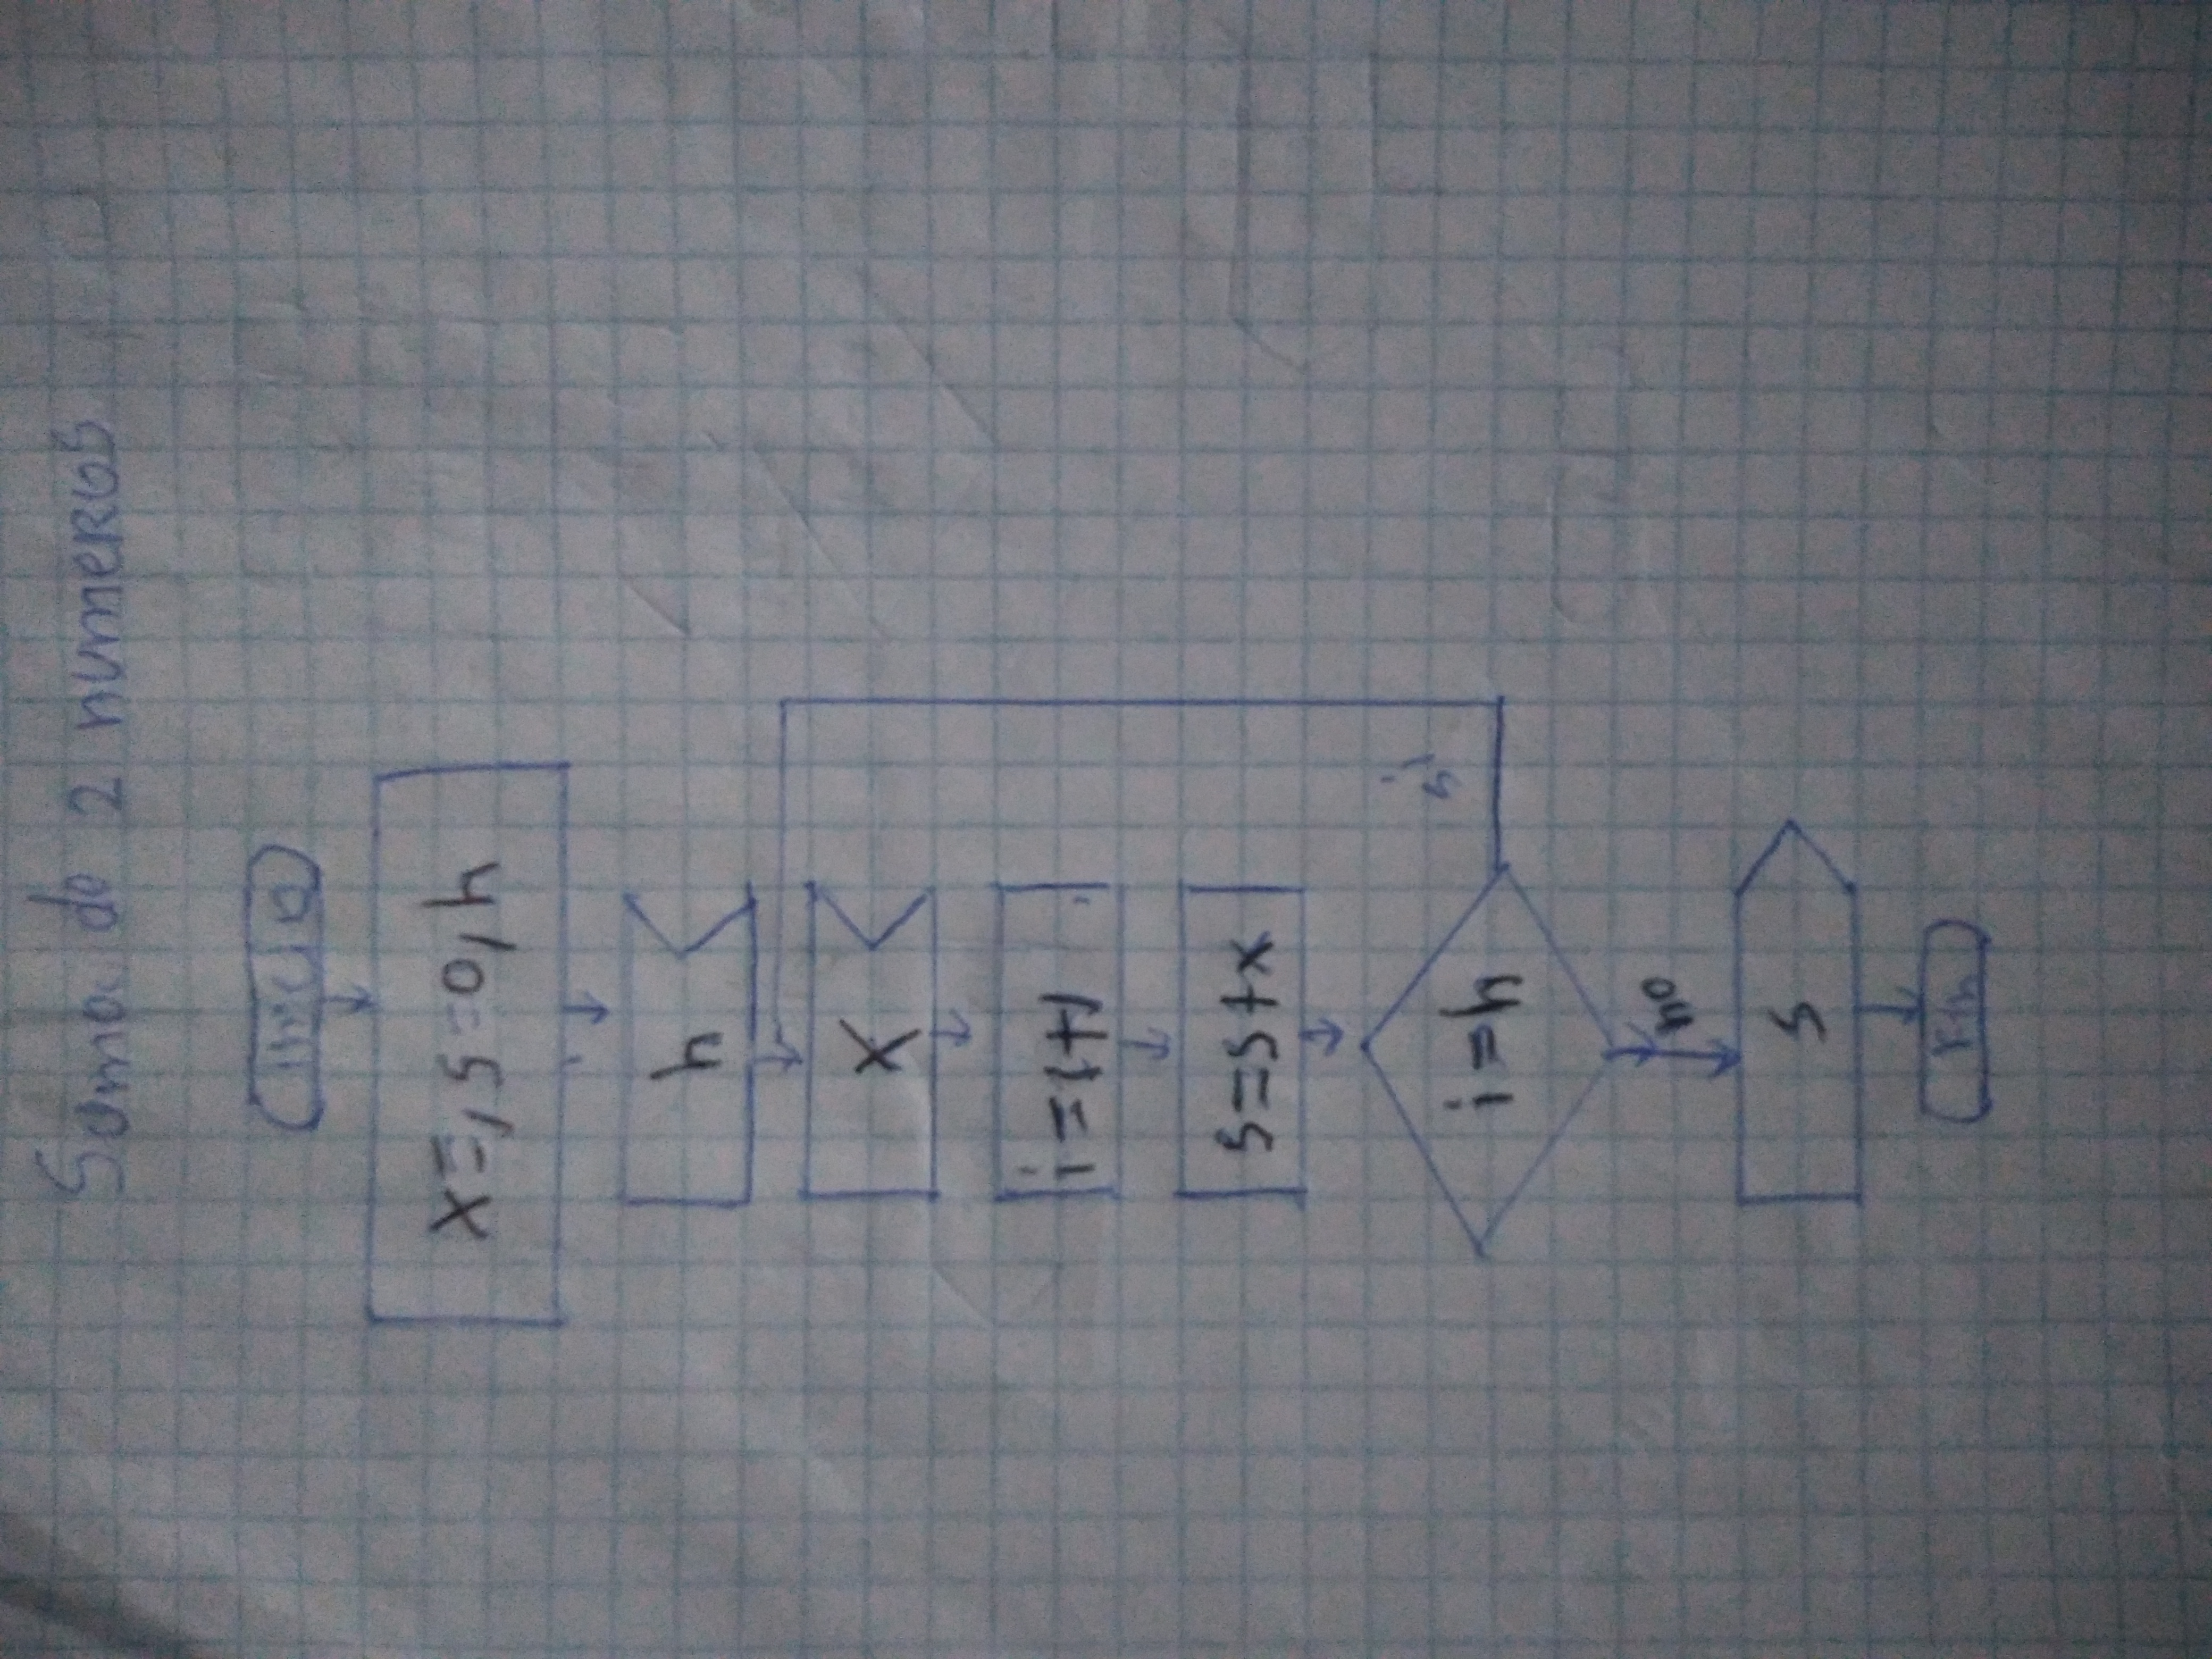 Suma de 2 numeros
inicio
x=, s=0, h
h
x
i=1+1
s=s+x
i=h
si
no
s
Fin